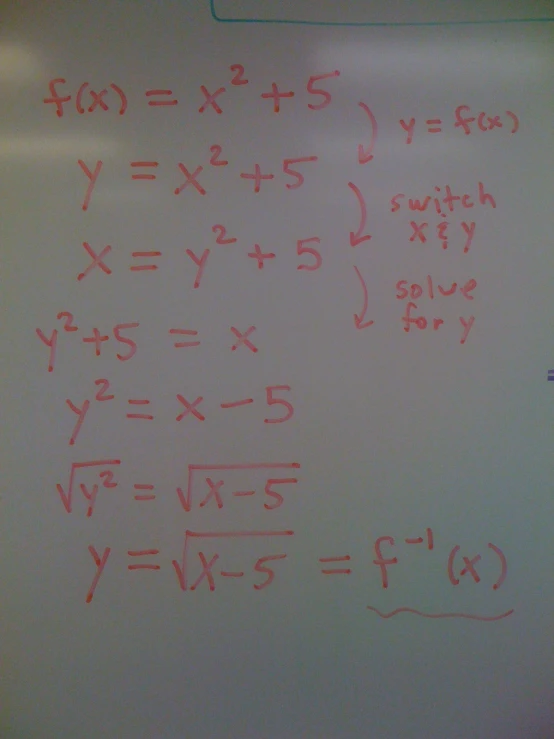 f(x) = x² + 5
y = f(x)
y = x² + 5
switch
x & y
x = y² + 5
solve
for y
y² + 5 = x
y² = x - 5
√y² = √x - 5
y = √x - 5 = f⁻¹(x)